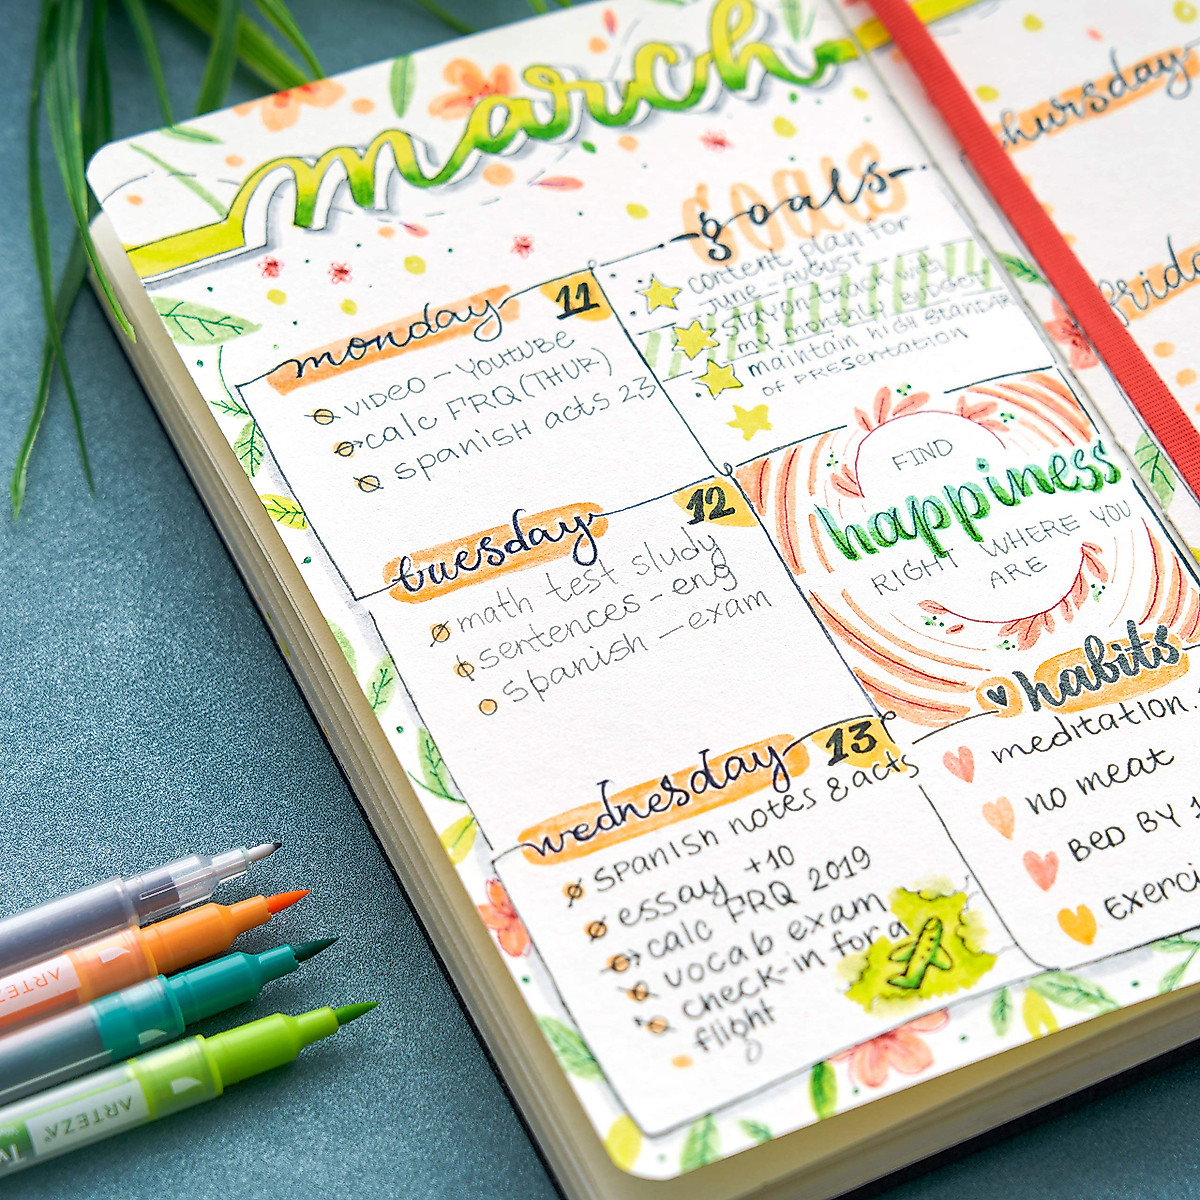 march
monday 11
VIDEO - YOUTUBE
calc FRQ (THUR)
spanish acts 2,3
tuesday 12
math test study
sentences - eng
spanish - exam
wednesday 13
SPANISH notes & acts
essay +10
calc FRQ 2019
vocab exam
check-in for a
flight
goals
content plan for
June - AUGUST
stay on track with
my monthly budget
maintain HIGH STANDARD
OF PRESENTATION
FIND
happiness
RIGHT WHERE YOU
ARE
habits
meditation
no meat
BED BY
Exerci
thursday
frida
ARTEZA
ARTEZA